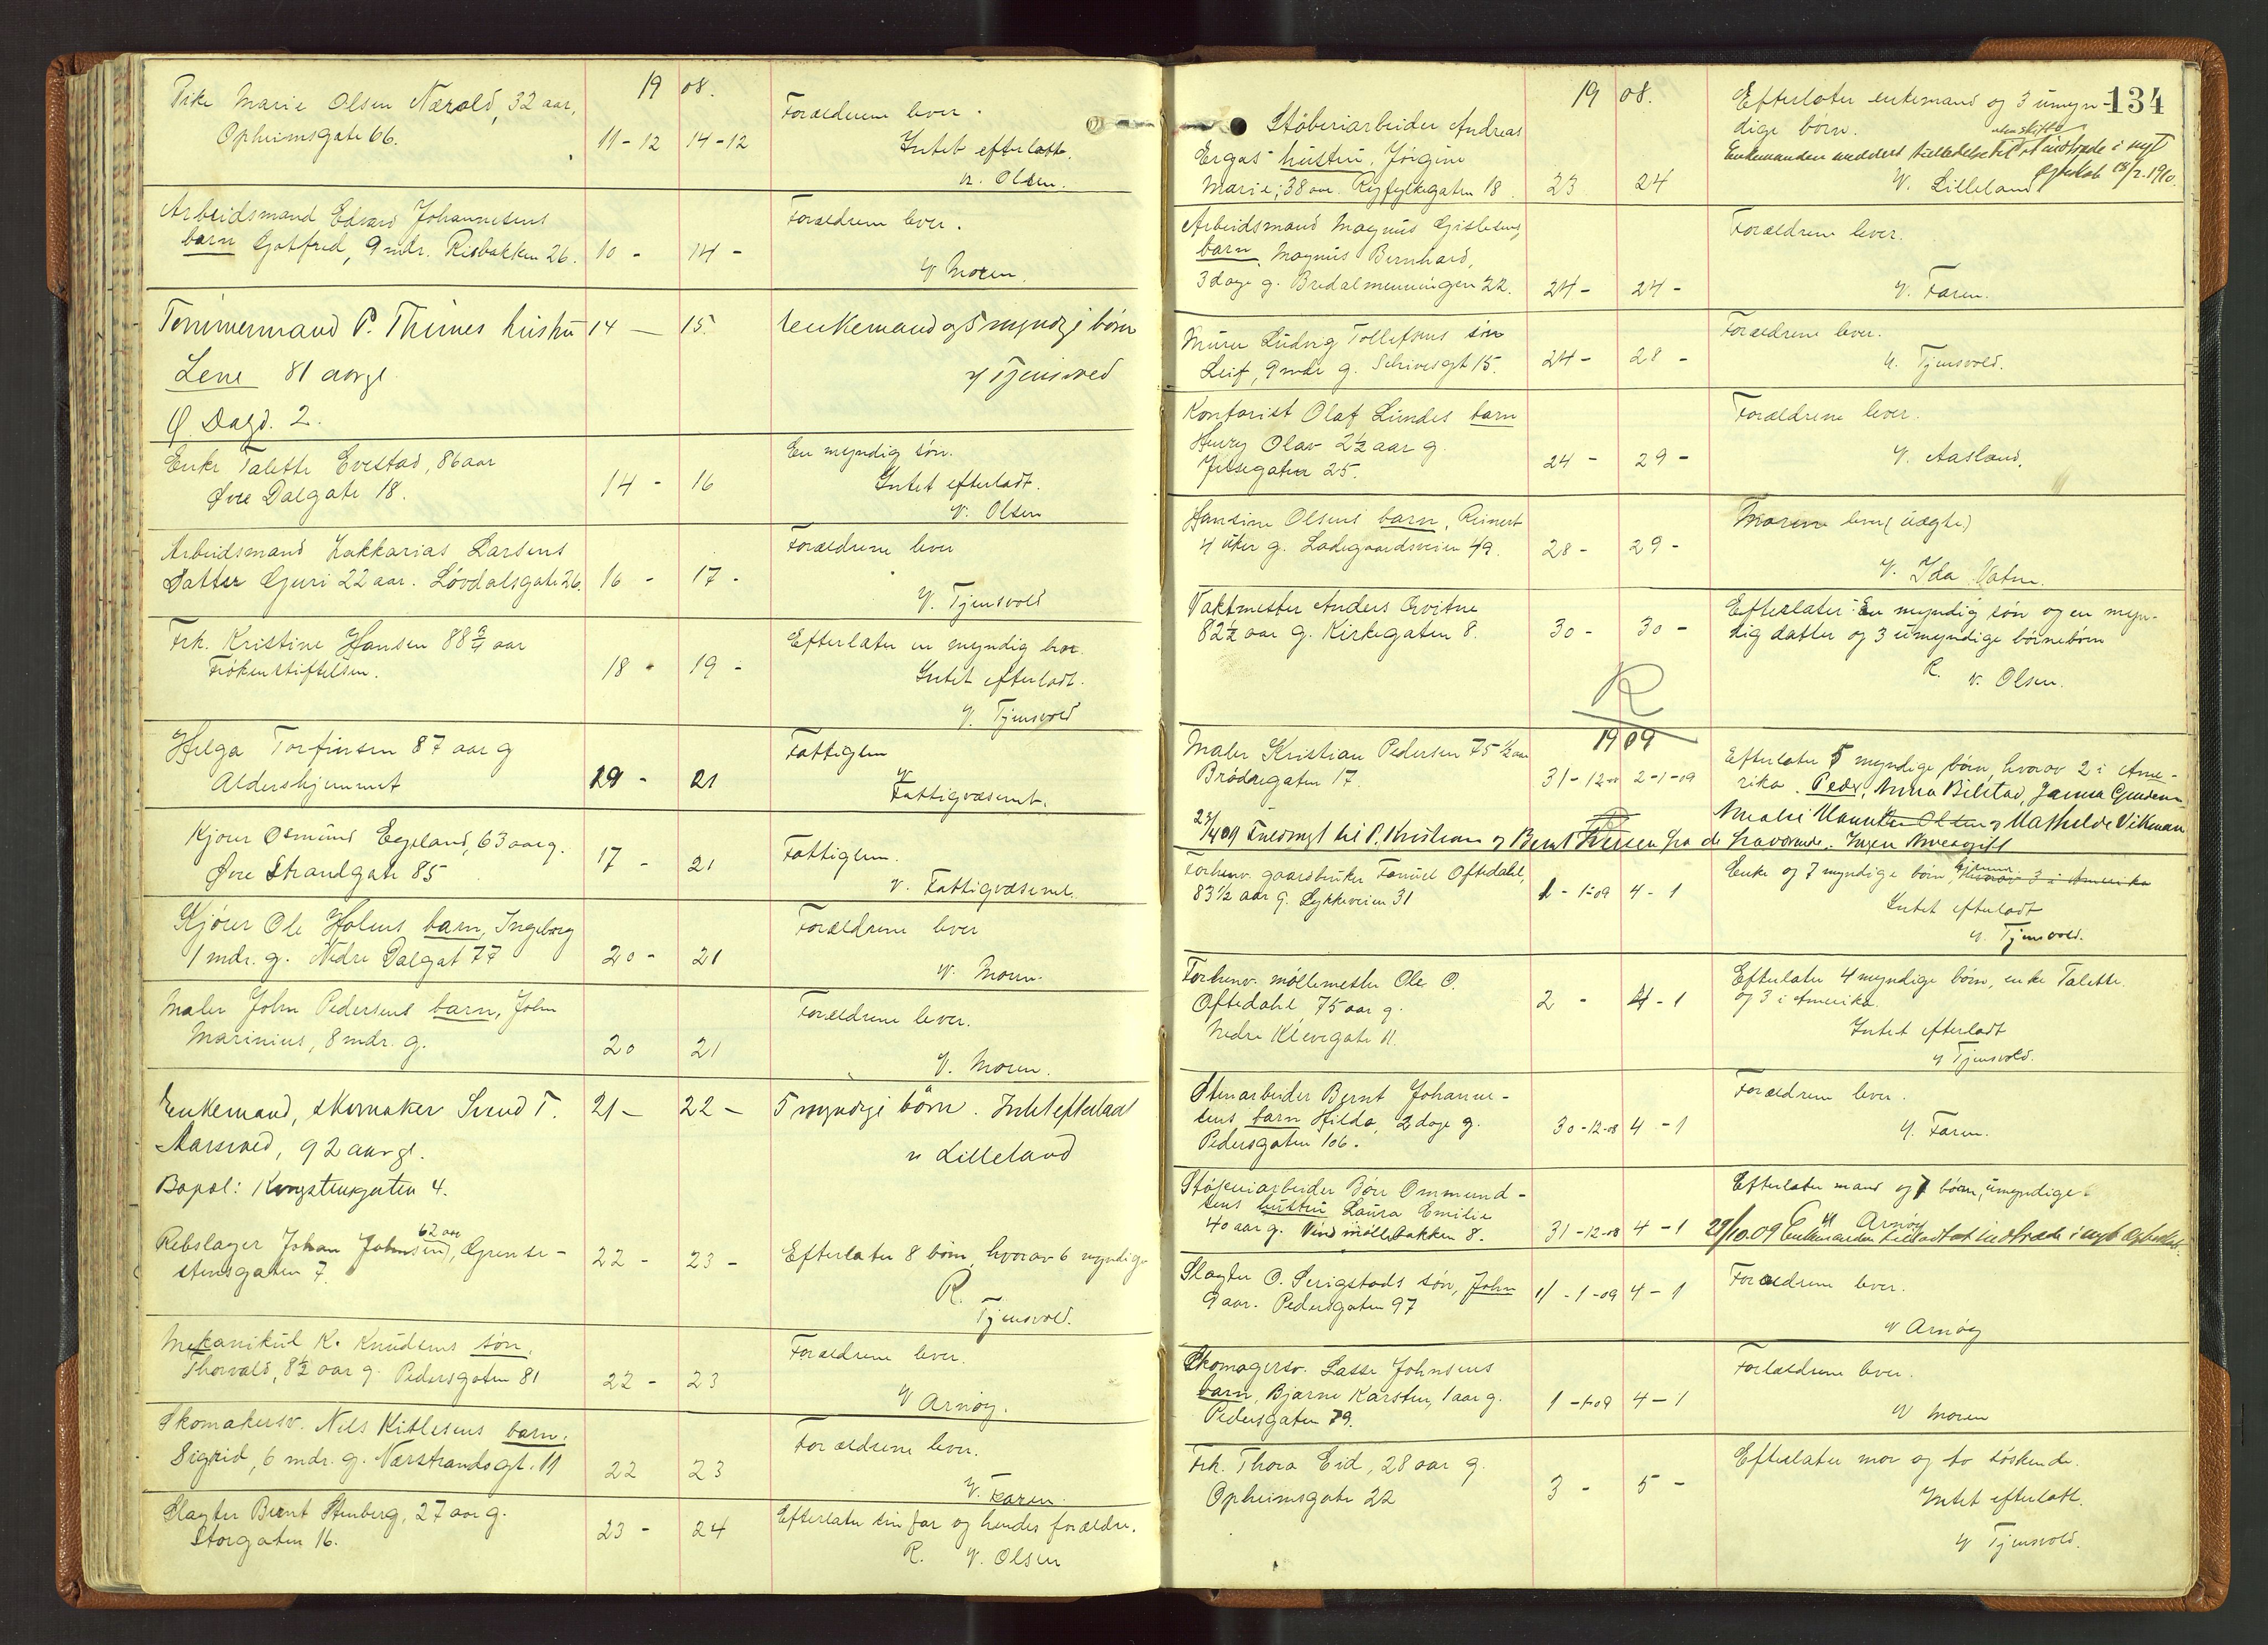 19 08.
Pike Marie Olsen Nærold, 32 aar,
Opheimsgate 66.
11-12 14-12
Forældrene lever.
Intet efterlatt.
v. Olsen.
Arbeidsmand Edvard Johannesens
barn Gotfred, 9 mdr. Risbakken 26.
10 - 14 -
Forældrene lever.
V Moren.
Tømmermand P. Thimes hustru
Lene 81 aar gl.
Ø. Dalgd. 2.
14 — 15
Enkemand og 5 myndige børn
v/ Tjensvold
Enke Talette Evestad, 86 aar
Øvre Dalgate 18.
14 - 16
En myndig søn.
Intet efterladt.
V. Olsen
Arbeidsmand Zakkarias Larsens
Datter Guri 22 aar. Løvdalsgate 26.
16 - 17 -
Forældrene lever
V. Tjensvold
Frk. Kristine Hansen 88 aar
Frøkenstiftelsen.
18 - 19 -
Efterlater en myndig bror.
Intet efterladt.
V. Tjensvold
Helga Torfinsen 87 aar g
Aldershjemmet
19 - 21
Fattiglem
v Fattigvæsenet.
Kjører Osmund Egeland, 63 aar g.
Øvre Strandgate 85
17 - 21
Fattiglem.
v. Fattigvæsenet.
Kjører Ole Holens barn, Ingeborg
1 mdr. g. Nedre Dalgat 77
20 - 21
Forældrene lever
V. Moren.
Maler John Pedersens barn, John
Marinius, 8 mdr. g.
20 21
Forældrene lever.
V. Moren.
Enkemand, skomaker Svend T.
Aarsvold, 92 aar gl.
Bopæl: Kongstensgaten 4.
21 - 22 -
5 myndige børn. Intet efterlaat
v Lilleland
Rebslager Johan Johnsen, 62 aar, Grense-
stensgaten 7.
22 - 23 -
Efterlater 8 børn, hvorav 6 myndige
R.
Tjensvold.
Mekanikul K. Knudsens søn,
Thorvald, 8½ aar g. Pedersgaten 81
22 - 23
Forældrene lever.
V Arnøy.
Skomakersv. Nils Kitlesens barn,
Sigrid, 6 mdr. g. Nærstrandsgt. 11
22 23
Forældrene lever.
V. Faren.
Slagter Bernt Stenberg, 27 aar g.
Storgaten 16.
23 - 24
Efterlater sin far og hendes forældre.
R. V. Olsen
134
19 08.
Støberiarbeider Andreas
Ergas hustru, Jørgine
Marie, 38 aar. Ryfylkegaten 18.
23 24
Efterlater enkemand og 3 umyn-
dige børn.
Enkemanden meddelt tilladelse til uten skifte at indtræde i nyt
egteskab 18/2 1910.
V. Lilleland
Arbeidsmand Magnus Gislesens
barn, Magnus Bernhard,
3 dage g. Bredalmenningen 22.
24 - 24 -
Forældrene lever.
V. Faren.
Murer Ludvig Tollefsens søn
Leif, 9 mdr g. Schivesgt 15.
24 - 28 -
Forældrene lever.
V. Tjensvold.
Kontorist Olaf Lundes barn
Henry Olav 2½ aar g.
Jelsegaten 25.
24 - 29 -
Forældrene lever.
V. Aasland.
Hansine Olsens barn, Reinert
4 uker g. Ladegaardsveien 49.
28 - 29 -
Moren lever (uægte)
V. Ida Vatne.
Vaktmester Anders Qvitne
82½ aar g. Kirkegaten 8.
30 - 30 -
Efterlater: En myndig søn og en myn-
dig datter og 3 umyndige børnebørn
R. v. Olsen.
R
1909
Maler Kristian Pedersen 75 ½ aar
Brødregaten 17.
31-12-08 2-1-09
Efterlater 5 myndige børn, hvorav 2 i Ame-
rika. Peder, Anna Bilstad, Janna Gundersen
Malie Olsen og Mathilde Vikman
23/4 09 Fuldmagt til P. Kristian og Bernt Iversen fra de fraværende.
Forhenv. gaardbruker Samuel Oftedahl,
83½ aar g. Lykkeveien 31
1 - 1-09 4 - 1
Enke og 7 myndige børn, hjemme hvorav 3 i Amerika
Intet efterladt
V. Tjensvold.
Forhenv. møllemester Ole O.
Oftedahl, 75 aar g.
Nedre Klevegate 11.
2 - 4 - 1
Efterlater 4 myndige børn, enke Talette
og 3 i Amerika.
Intet efterladt
V Tjensvold.
Stenarbeider Bernt Johanne-
sens barn Hilda, 2 dage g.
Pedersgaten 106.
30-12-08 4 - 1
Forældrene lever.
V. Faren.
Støperiarbeider Børe Ommund-
sens hustru Laura Emilie
40 aar g. Vindmøllebakken 8.
31-12-08 4 - 1
Efterlater mand og 7 børn, umyndige
V Arnøy
29/10.09 Enkemanden tilladt at indtræde i nyt egteskab.
Slagter O. Serigstads søn, John
9 aar. Pedersgaten 97
1/ - 1-09 4 - 1
Forældrene lever.
V Arnøy
Skomagersv. Lasse Johnsens
barn, Bjarne Karsten, 1 aar g.
Pedersgaten 79.
1 - 1-09 4 - 1
Forældrene lever.
V Moren
Frk. Thora Eid, 28 aar g.
Opheimsgate 22
3 - 5 -
Efterlater mor og to søskende.
Intet efterlatt.
V Tjensvold.